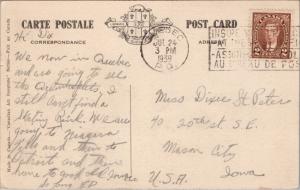 CARTE POSTALE
POST CARD
CORRESPONDANCE
ADDRESS
QUEBEC
JUL 24
3 PM
1939
P.Q.
AU BUREAU DE POSTE
Hi Dix
We now in Quebec
and are going to see
the
still can't find a
Skating Rink. We are
going to Niagara
Falls and then to
Detroit and then
home to good old Iowa
so long
Miss Dixie St. Peters
40 - 20th St. S.E.
Mason City
Iowa
U.S.A.